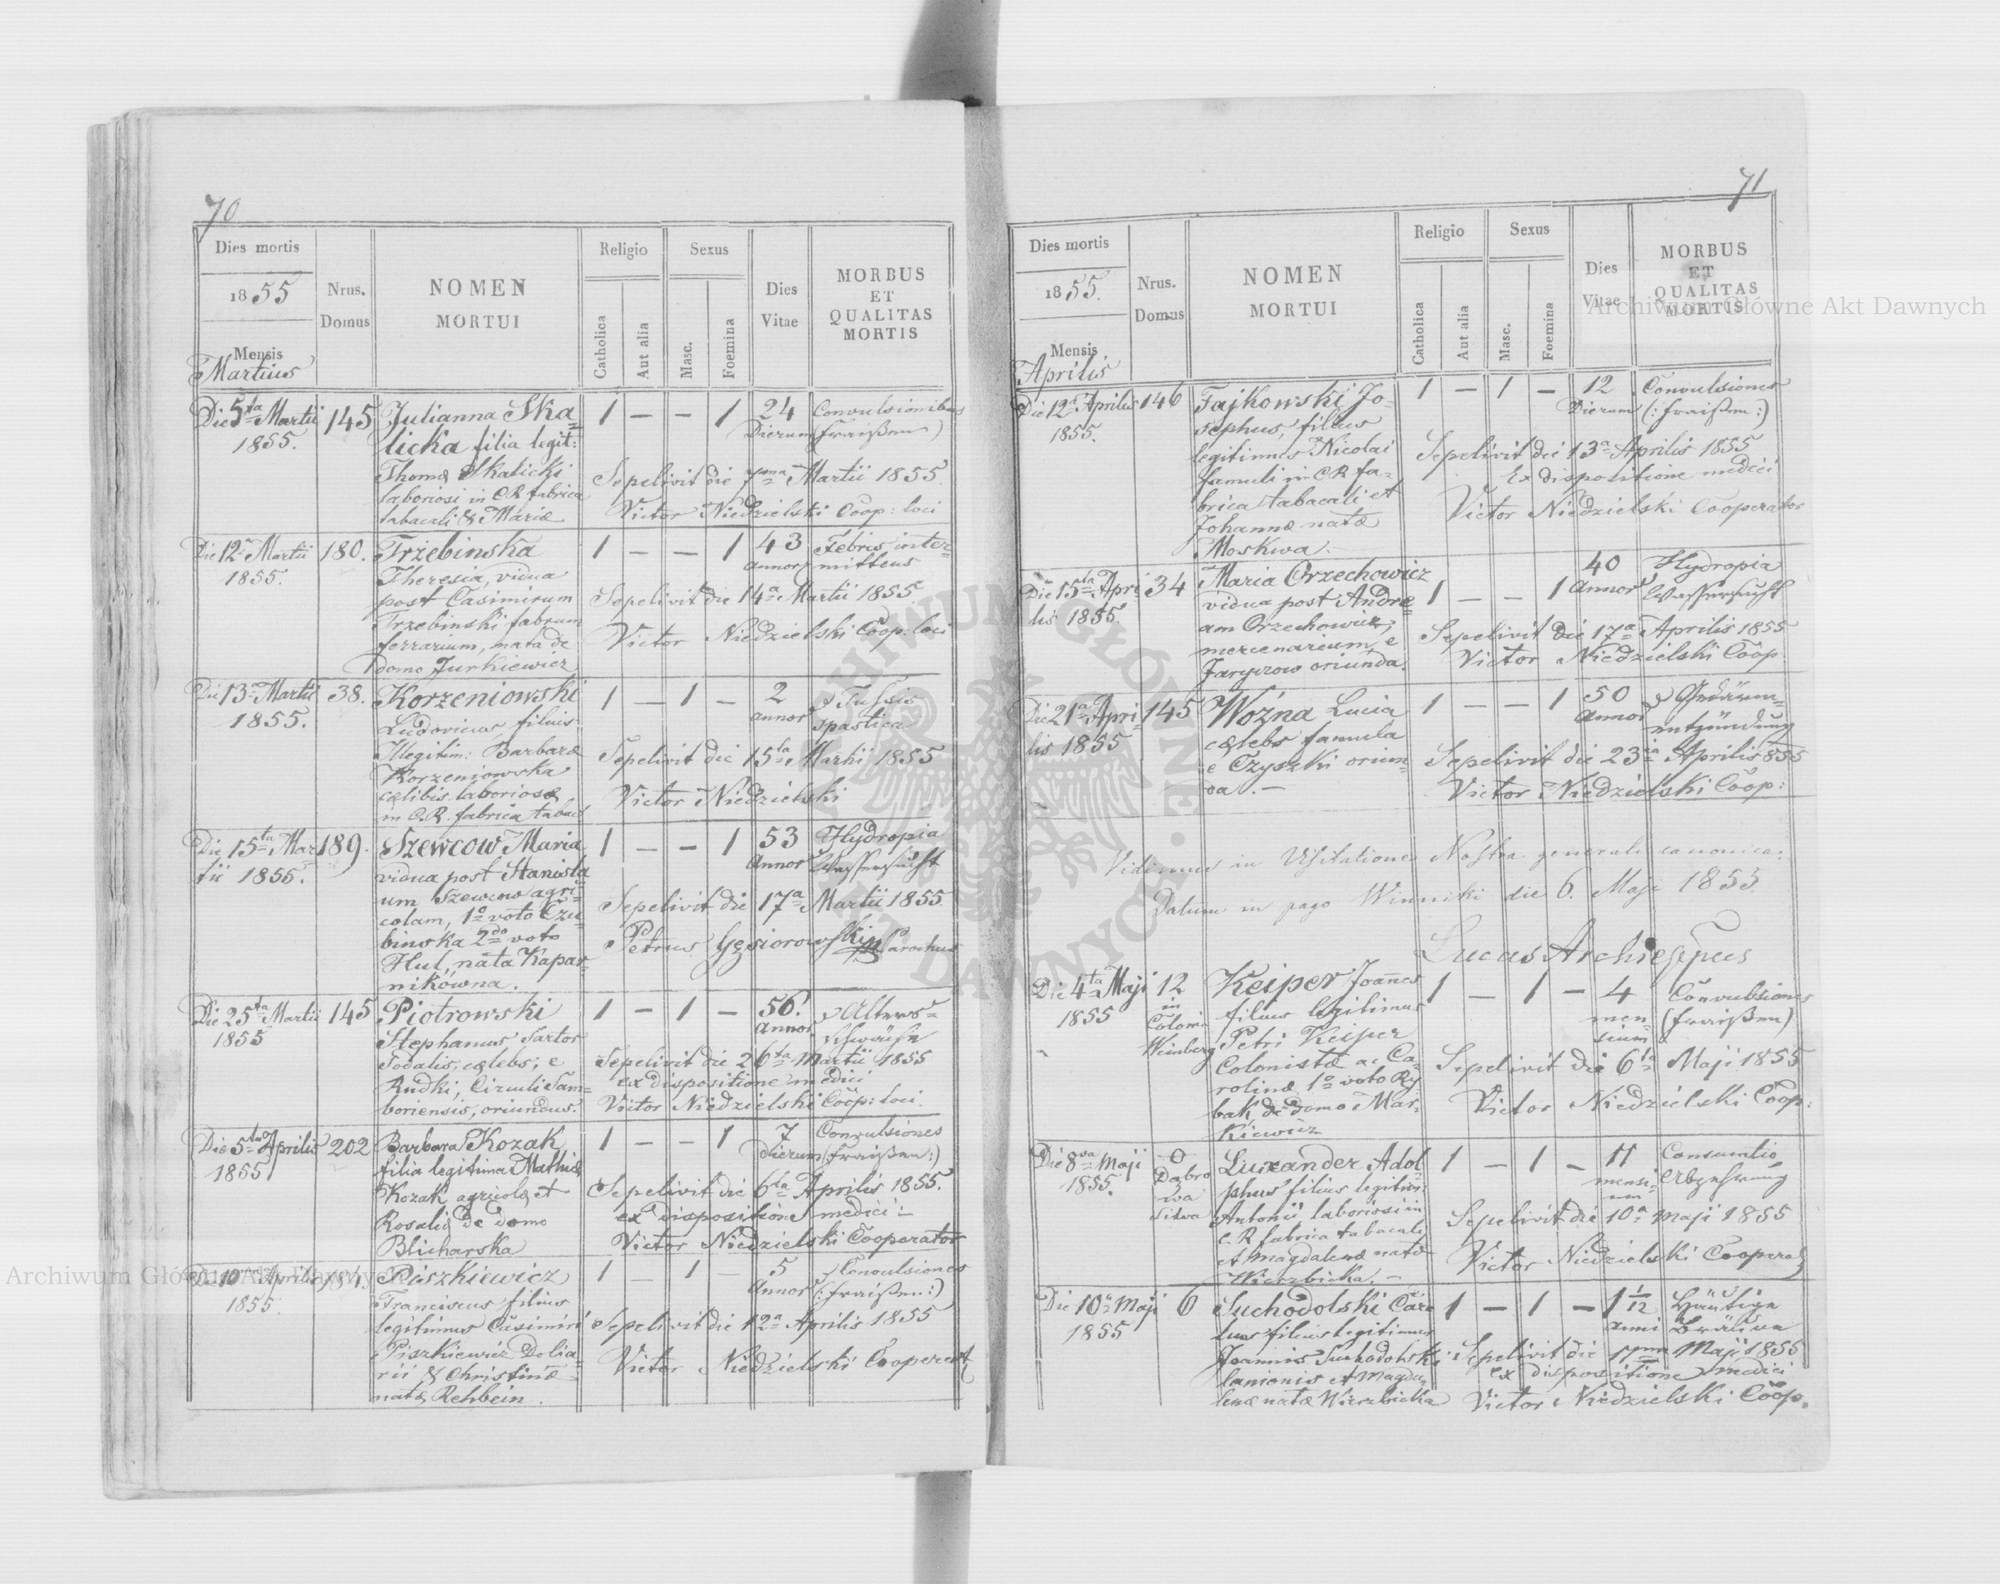 70
Dies mortis
1855
Mensis
Martius
Nrus.
Domus
NOMEN
MORTUI
Religio
Catholica
Aut alia
Sexus
Masc.
Foemina
Dies
Vitae
MORBUS
ET
QUALITAS
MORTIS
Die 5ta Martii 145 Julianna Ska 1 — — 1 24 Convulsionibus
1855. licka filia legit: Dierum (fraißen)
Thomæ Skalicki Sepelivit die 7ma Martii 1855.
laboriosi in CR fabrica Victor Niedzielski Coop: loci
tabacali & Mariæ
Die 12a Martii 180. Trzebinska 1 — — 1 43 Febris inter-
1855. Theresia, vidua annor mittens
post Casimirum Sepelivit die 14a Martii 1855.
Trzebinski fabrum Victor Niedzielski Coop: loci
ferrarium, nata de
Domo Jurkiewicz
Die 13a Martii 38. Korzeniowski 1 — 1 — 2 Tussis
1855. Ludovicus, filius annor spastica
Illegitim: Barbaræ Sepelivit die 15ta Martii 1855
Korzeniowska Victor Niedzielski
cælibis laboriosæ
in C.R. fabrica tabac
Die 15ta Mar 189. Szewcow Maria 1 — — 1 53 Hydropia
tii 1855. vidua post Stanisla annor Wassersucht
um Szewcow agri- Sepelivit die 17a Martii 1855.
colam, 1o voto Czu Petrus Gęsiorowski Parochus
binska 2do voto
Hul, nata Kapar-
nikówna.
Die 25ta Martii 145 Piotrowski 1 — 1 — 56. Alters-
1855 Stephanus Sartor annor schwäche
Sodalis, cælebs, e Sepelivit die 26ta Martii 1855
Rudki, Circuli Sam- ex dispositione medici
boriensis, oriundus. Victor Niedzielski Coop: loci.
Die 5ta Aprilis 202 Barbara Kozak 1 — — 1 7 Convulsiones
1855 filia legitima Mathiæ Dierum (fraißen:)
Kozak agricolæ et Sepelivit die 6ta Aprilis 1855.
Rosaliæ de domo ex dispositione medici
Blicharska Victor Niedzielski Cooperator
Die 10ma Aprilis 184. Piszkiewicz 1 — 1 — 5 Convulsiones
1855. Franciscus filius annor (:fraißen:)
legitimus Casimiri Sepelivit die 12a Aprilis 1855
Piszkiewicz Dolia- Victor Niedzielski Cooperat
rii & Christinæ
natæ Rehbein.
71
Dies mortis
1855.
Mensis
Aprilis
Nrus.
Domus
NOMEN
MORTUI
Religio
Catholica
Aut alia
Sexus
Masc.
Foemina
Dies
Vitae
MORBUS
ET
QUALITAS
MORTIS
Die 12a Aprilis 146 Fajkowski Jo- 1 — 1 — 12 Convulsiones
1855. sephus, filius Dierum (:fraißen:)
legitimus Nicolai Sepelivit die 13a Aprilis 1855
famuli in CR fa- Ex dispositione medici
brica tabacali et Victor Niedzielski Cooperator
Johannæ natæ
Moskwa.
Die 15ta Apri 34 Maria Orzechowicz 1 — — 1 40 Hydropia
lis 1855. vidua post Andre annor Wassersucht
am Orzechowicz, Sepelivit die 17a Aprilis 1855
mercenarium, e Victor Niedzielski Coop.
Jaryczow oriunda.
Die 21a Apri- 145 Wozna Lucia 1 — — 1 50 Gedärm-
lis 1855 cælebs famula annor entzündung
e Czyszki oriun- Sepelivit die 23ia Aprilis 855
da. — Victor Niedzielski Coop:
Vidimus in Visitatione Nostra generali canonica.
Datum in pago Winniki die 6. Maji 1855.
Lucas Archieppus
Die 4ta Maji 12 Keiper Joannes 1 — 1 — 4 Convulsiones
1855 in Coloni Weinberg filius legitimus mensium (fraißen)
Petri Keiper Sepelivit die 6ta Maji 1855
Colonistæ ac Ca- Victor Niedzielski Coop:
rolinæ 1o voto Ry-
bak, de domo Mar-
kiewicz
Die 8va Maji 0 Luxander Adol- 1 — 1 — 11 Consumtio
1855. Dabro phus filius legitim: mensi- Abzehrung
Antonii laboriosi in um Sepelivit die 10a Maji 1855
C.R fabrica tabacali Victor Niedzielski Cooperat
et Magdalenæ natæ
Wierzbicka. —
Die 10a Maji 6 Suchodolski Caro 1 — 1 — 1 1/12 Häutige
1855 lus filius legitimus anni Bräune
Joannis Suchodolski Sepelivit die 11ma Maji 1855
lanionis et Magda- ex dispositione medici
lenæ natæ Wierzbicka Victor Niedzielski Coop.
Archiwum Główne Akt Dawnych
Archiwum Główne Akt Dawnych
ARCHIWUM GŁÓWNE AKT DAWNYCH